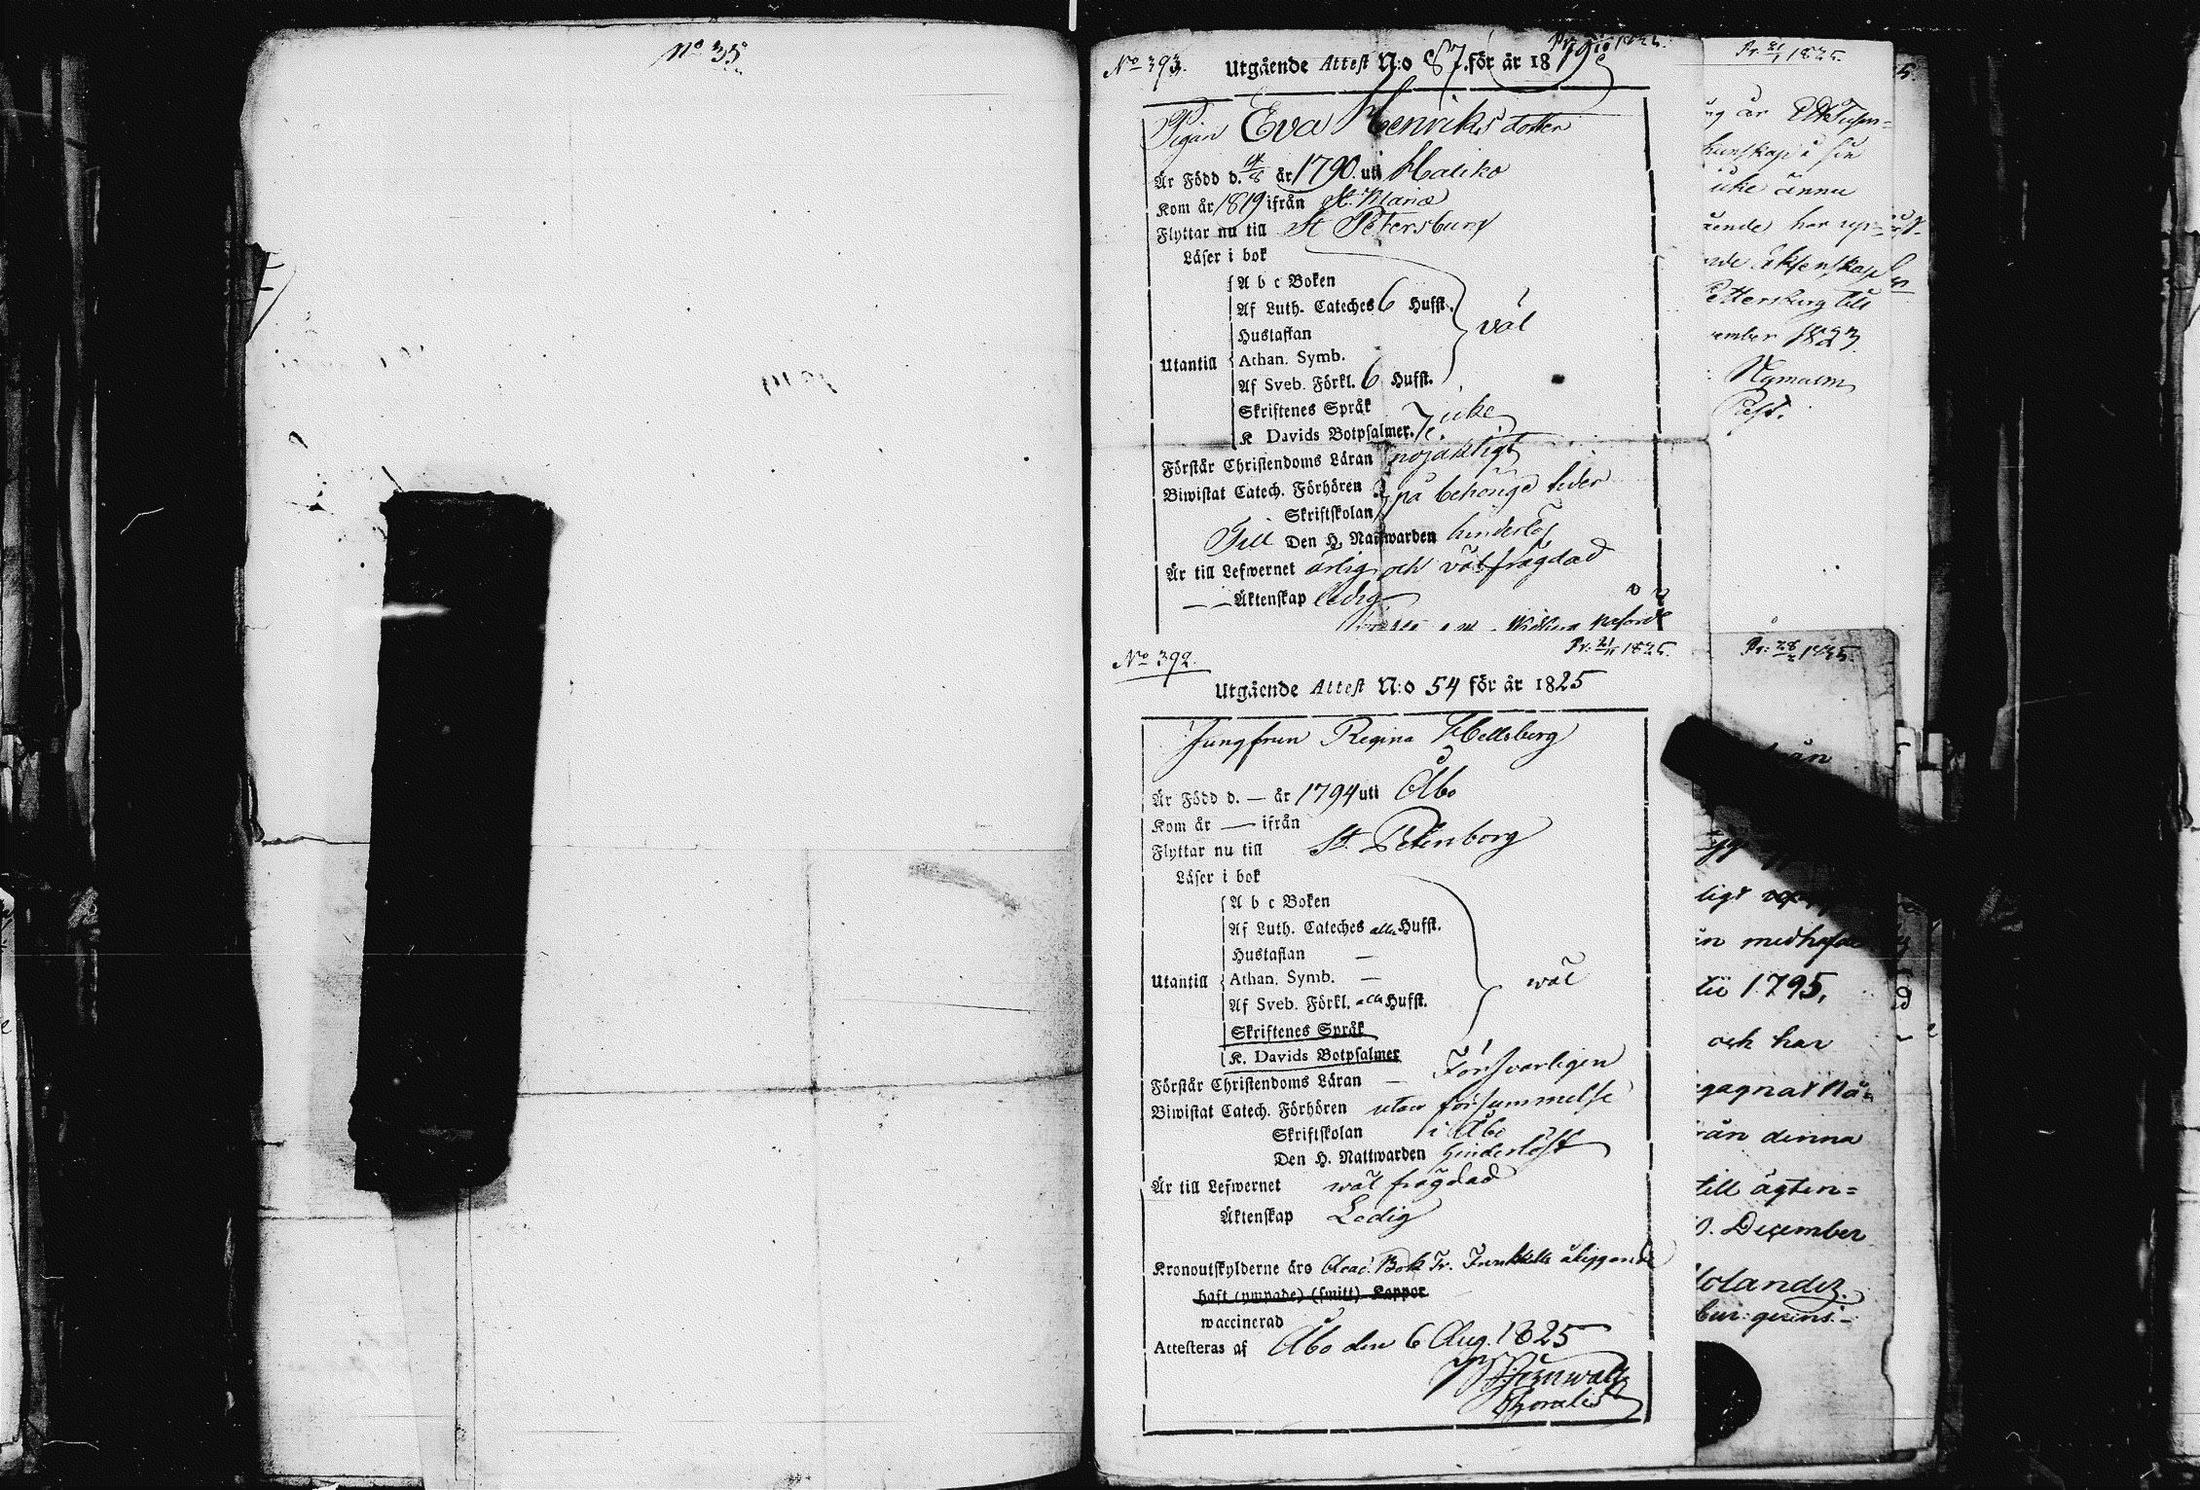 No 35
No 393.
Utgående Attest N:o 87. för år 1819
Pigan Eva Henriksdotter
Är Född d. 14/8 år 1790. uti Haliko
Kom år 1819 ifrån St. Mariæ
Flyttar nu till St Petersburg
Läser i bok
A b c Boken
Af Luth. Cateches 6 Hufst.
Hustaflan
väl
Utantill Athan. Symb.
Af Sveb. Förkl. 6 Hufst.
Skriftenes Språk
icke
K Davids Botpsalmer.
Förstår Christendoms Läran nöjaktigt
Biwistat Catech. Förhören på behörige tider
Skriftskolan
Till Den H. Nattwarden hinderlös
Är till Lefwernet ärlig och välfrägdad
Äktenskap ledig
No 392.
Pr: 21/11 1825.
Utgående Attest N:o 54 för år 1825
Jungfrun Regina Hellsberg
Är Född d. — år 1794 uti Åbo
Kom år — ifrån
Flyttar nu till St. Petersborg
Läser i bok
A b c Boken
Af Luth. Cateches alla Hufst.
Hustaflan —
Utantill Athan. Symb. —
wäl
Af Sveb. Förkl. alla Hufst.
Skriftenes Språk
K. Davids Botpsalmer
Förstår Christendoms Läran — Försvarligen
Biwistat Catech. Förhören utan försummelse
Skriftskolan i Åbo
Den H. Nattwarden hinderlöst
Är till Lefwernet wäl frägdad
Äktenskap Ledig
Kronoutskylderne äro Acad. Bok Tr. Frenckells åliggande
haft (ympade) (smitt) Kappor
waccinerad
Attesteras af Åbo den 6 Aug. 1825
Pr. 21/1 1825.
kunskap i sin
icke ännu
ående har
Äktenskap
Pettersburg
ember 1823
Nymalm
Past.
Pr: 28/2 1825.
ån
ligt
än medhafde
1795,
och har
gagnat Nå=
rån denna
till ägten=
December
olander.